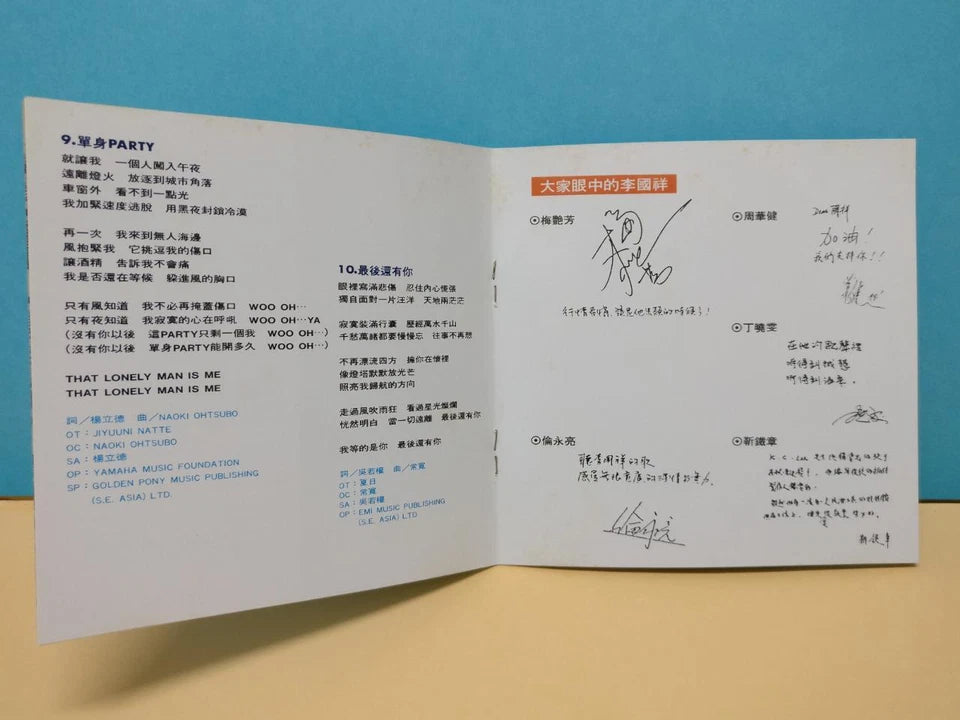 9.單身PARTY
就讓我 一個人闖入午夜
遠離燈火 放逐到城市角落
車窗外 看不到一點光
我加緊速度逃脫 用黑夜封鎖冷漠
再一次 我來到無人海邊
風抱緊我 它挑逗我的傷口
讓酒精 告訴我不會痛
我是否還在等候 躲進風的胸口
只有風知道 我不必再掩蓋傷口 WOO OH…
只有夜知道 我寂寞的心在呼吼 WOO OH…YA
(沒有你以後 這PARTY只剩一個我 WOO OH…)
(沒有你以後 單身PARTY能開多久 WOO OH…)
THAT LONELY MAN IS ME
THAT LONELY MAN IS ME
詞／楊立德 曲／NAOKI OHTSUBO
OT：JIYUUNI NATTE
OC：NAOKI OHTSUBO
SA：楊立德
OP：YAMAHA MUSIC FOUNDATION
SP：GOLDEN PONY MUSIC PUBLISHING
(S.E. ASIA) LTD
10.最後還有你
眼裡寫滿悲傷 忍住內心慌張
獨自面對一片汪洋 天地兩茫茫
寂寞裝滿行囊 歷經萬水千山
千愁萬緒都要慢慢忘 往事不再想
不再漂流四方 擁你在懷裡
像燈塔默默放光芒
照亮我歸航的方向
走過風吹雨狂 看過星光燦爛
恍然明白 當一切遠離 最後還有你
我等的是你 最後還有你
詞／吳若權 曲／常寬
OT：夏日
OC：常寬
SA：吳若權
OP：EMI MUSIC PUBLISHING
(S.E. ASIA) LTD.
大家眼中的李國祥
⊙梅艷芳
⊙周華健
加油！
我們支持你！！
⊙丁曉雯
在他的歌聲裡
聽得到
聽得到滄桑。
⊙倫永亮
聽李國祥的歌
感受無限寬廣的
倫永亮
⊙靳鐵章
靳鐵章